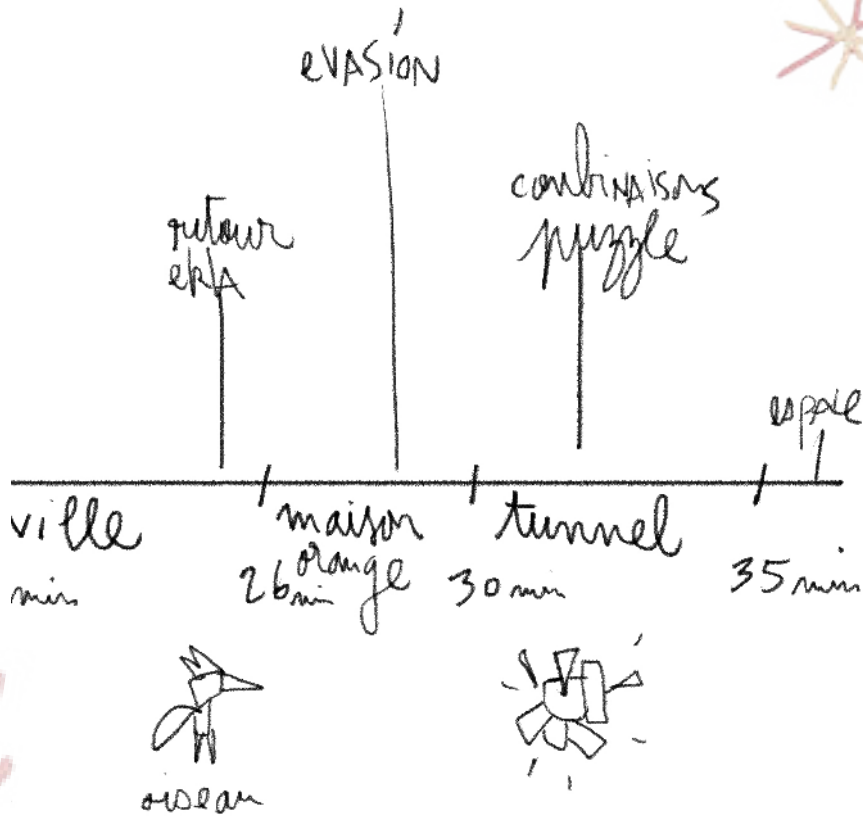 eVASIÓN
retour
eKIA
combiNAisons
puzzle
espace
ville
maison
orange
tunnel
min
26 min
30 min
35 min
oiseau